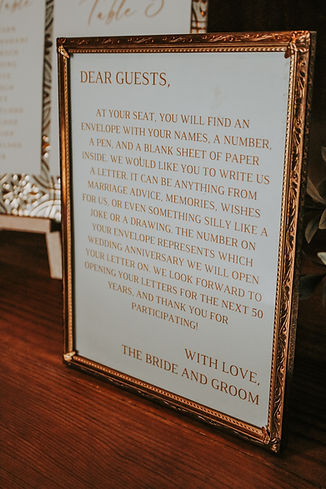 Table 3
DEAR GUESTS,
AT YOUR SEAT, YOU WILL FIND AN
ENVELOPE WITH YOUR NAMES, A NUMBER,
A PEN, AND A BLANK SHEET OF PAPER
INSIDE. WE WOULD LIKE YOU TO WRITE US
A LETTER. IT CAN BE ANYTHING FROM
MARRIAGE ADVICE, MEMORIES, WISHES
FOR US, OR EVEN SOMETHING SILLY LIKE A
JOKE OR A DRAWING. THE NUMBER ON
YOUR ENVELOPE REPRESENTS WHICH
WEDDING ANNIVERSARY WE WILL OPEN
YOUR LETTER ON. WE LOOK FORWARD TO
OPENING YOUR LETTERS FOR THE NEXT 50
YEARS, AND THANK YOU FOR
PARTICIPATING!
WITH LOVE,
THE BRIDE AND GROOM